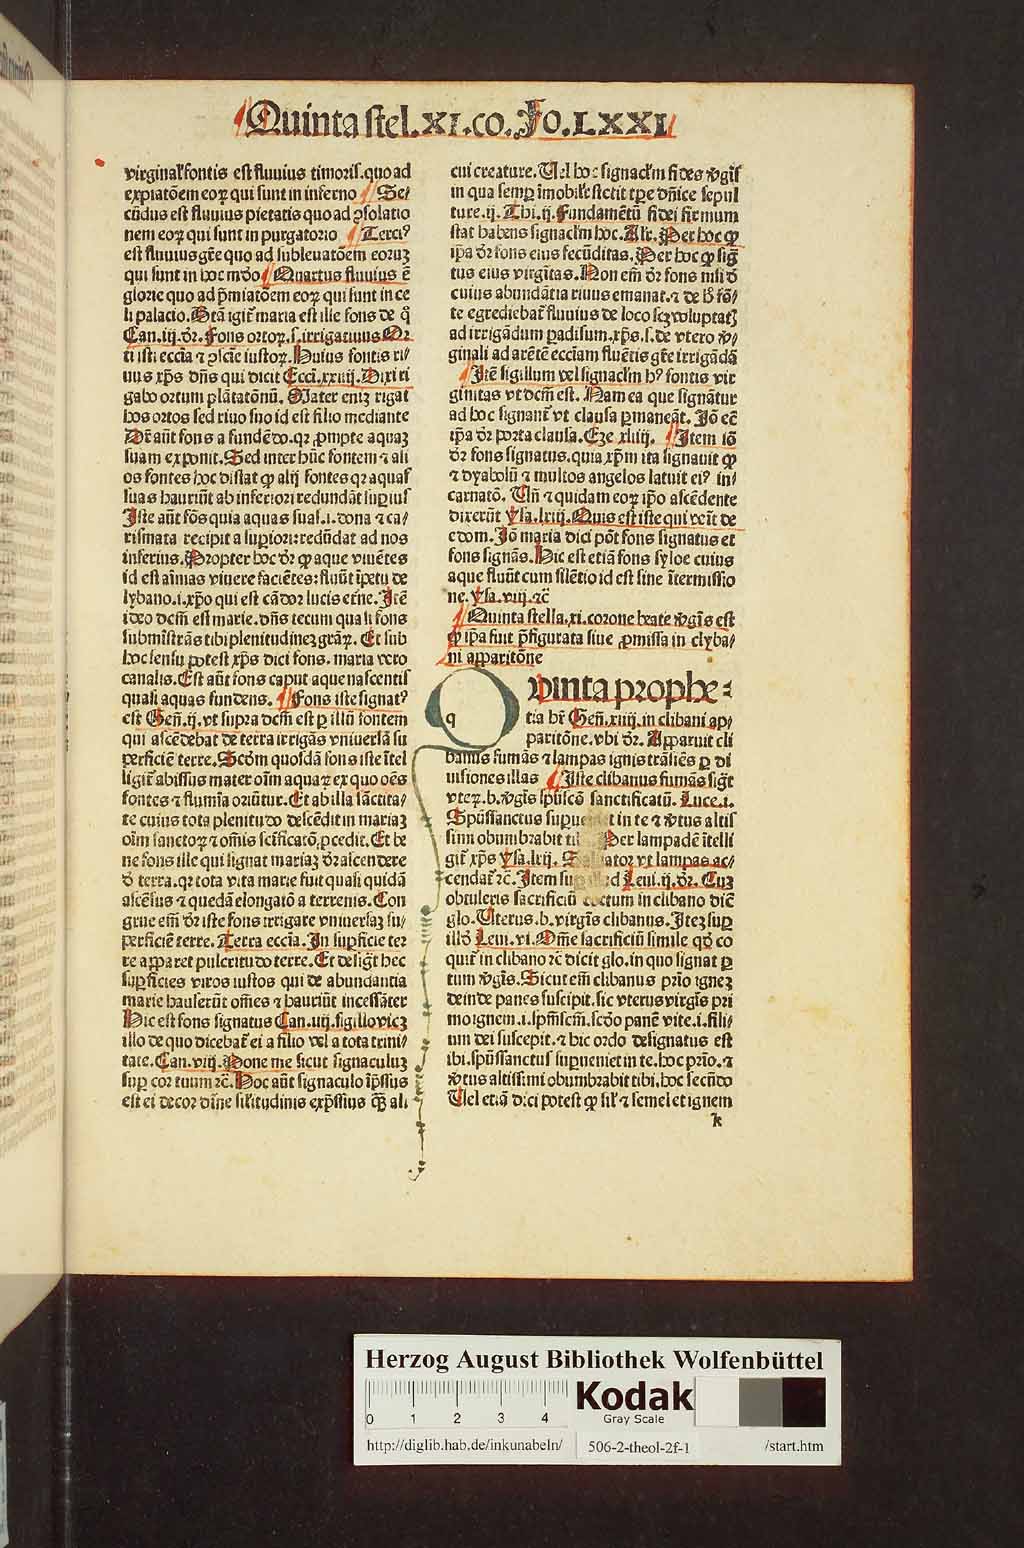 Quinta stel.XI.co.Fo.LXXI
virginal' fontis est fluuius timoris.quo ad
expiatōem eoꝝ qui sunt in inferno Se⸗
cūdus est fluuius pietatis quo ad ↄsolatio
nem eoꝝ qui sunt in purgatorio Terciꝰ
est fluuius grē quo ad subleuatōem eoruꝫ
qui sunt in hoc mūdo Quartus fluuius ē
glorie quo ad p̄miatōem eoꝝ qui sunt in ce
li palacio. Btā igit̄ maria est ille fons de q̊
Can.iiij.dr̄. Fons ortoꝝ.s.irrigatiuus Or
ti isti eccīa ⁊ ↄsciē iustoꝝ. Huius fontis ri⸗
uus xp̄s dn̄s qui dicit Eccī.xxiiij. Dixi ri
gabo ortum plātatōnū. Mater enīꝫ rigat
hos ortos sed riuo suo id est filio mediante
Dr̄ aūt fons a fundēdo.qꝛ ꝓmpte aquaꝫ
suam exponit. Sed inter hūc fontem ⁊ ali
os fontes hoc distat ꝙ alij fontes qꝛ aquas
suas hauriūt ab inferiori redundāt suꝑius
Iste aūt fōs quia aquas suas.i.dona ⁊ ca⸗
rismata recipit a suꝑiori:redūdat ad nos
inferius. Propter hoc dr̄ ꝙ aque viuētes
id est aīmas viuere faciētes:fluūt īpetu de
lybano.i.xp̄o qui est cādor lucis etne. Itē
ideo dcm̄ est marie.dn̄s tecum quasi fons
submīstrās tibi plenitudineꝫ grāꝝ. Et sub
hoc sensu potest xp̄s dici fons. maria vero
canalis. Est aūt fons caput aque nascentis
quasi aquas fundens. Fons iste signatꝰ
est Geñ.ij.vt supra dcm̄ est ꝑ illū fontem
qui ascēdebat de terra irrigās vniuersā su
perficiē terre. Scdm̄ quosdā fons iste ītel
ligit̄ abissus mater oīm aquaꝝ ex quo oēs
fontes ⁊ flumīa oriūtur. Et ab illa sāctita⸗
te cuius tota plenitudo descēdit in mariaꝫ
oīm sanctoꝝ ⁊ om̄is scīficatō ꝓcedit. Et be
ne fons ille qui signat mariaꝫ dr̄ ascendere
d̄ terra.qꝛ tota vita marie fuit quasi quidā
ascēsus ⁊ quedā elongatō a terrenis. Con
grue em̄ dr̄ iste fons irrigare vniuersaꝫ su⸗
perficiē terre. Terra eccīa. In suꝑficie ter
re apparet pulcritudo terre. Et desigt̄ hec
suꝑficies viros iustos qui de abundantia
marie hauserūt om̄es ⁊ hauriūt incessāter
Hic est fons signatus Can.iiij.sigillo vicꝫ
illo de quo dicebat̄ ei a filio vel a tota trini⸗
tate. Can.viij. Pone me sicut signaculuꝫ
suꝑ cor tuum ⁊c̄. Hoc aūt signaculo īp̄ssius
est ei decor dīne silitudinis exp̄ssius q̄ꝫ ali
cui creature. Uel hoc signaclm̄ fides v̄gīs
in qua semꝑ īmobilis stetit tpe dn̄ice sepul
ture.ij. Thi.ij. Fundamētū fidei firmum
stat habens signaclm̄ hoc. Alr̄. Per hoc ꝙ
ip̄a dr̄ fons eius fecūditas. Per hoc ꝙ sig
tus eius virgītas. Non em̄ dr̄ fons nisi d̄
cuius abundātia riuus emanat.⁊ de h̄ fō⸗
te egrediebat̄ fluuius de loco scꝫ voluptat̄
ad irrigādum padisum.xp̄s.s.de vtero v̄⸗
ginali ad arētē ecciam fluētis grē irrigādā
Itē sigillum vel signaclm̄ hꝰ fontis vir
ginitas vt dcm̄ est. Nam ea que signātur
ad hoc signant̄ vt clausa ꝑmaneāt. Iō ec̄
ip̄a dr̄ porta clausa. Eze xliiij. Item iō
dr̄ fons signatus.quia xp̄m ita signauit ꝙ
⁊ dyabolū ⁊ multos angelos latuit eiꝰ in⸗
carnatō. Un̄ ⁊ quidam eoꝝ ip̄o ascēdente
dixerūt Ysa.lxiij. Quis est iste qui veīt de
edom. Iō maria dici pōt fons signatus et
fons signās. Hic est etiā fons syloe cuius
aque fluūt cum silētio id est sine ītermissio
ne. Ysa.viij.⁊c̄
Quinta stella.xi.corone beate v̄gīs est
ꝙ ip̄a fuit p̄figurata siue ꝓmissa in clyba⸗
ni apparitōne
Quinta prophe⸗
tia hr̄ Geñ.xiiij.in clibani ap⸗
paritōne.vbi dr̄. Apparuit cli
banus fumās ⁊ lampas ignis trāsiēs ꝑ di
uisiones illas Iste clibanus fumās sigt̄
vteꝝ.b.v̄gīs spūscō sanctificatū. Luce.i.
Spūssanctus in te ⁊ v̄tus altis
simi obumbrabit Per lampadē ītelli
git̄ xp̄s Ysa.lxij. vt lampas ac⸗
cendat̄ ⁊c̄. Item Leui.ij.dr̄. Cuꝫ
obtuleris sacrificiū coctum in clibano dicē
glo. Uterus.b.virgīs clibanus. Iteꝫ suꝑ
illō Leui.vi. Om̄e sacrificiū simile qd̄ co
quit̄ in clibano ⁊c̄ dicit glo.in quo signat ꝑ
tum v̄gīs. Sicut em̄ clibanus prīo igneꝫ
deinde panes suscipit.sic vterus virgīs pri
mo ignem.i.spm̄scm̄.scdo panē vite.i.fili⸗
um dei suscepit.⁊ hic ordo designatus est
ibi.spūssanctus suꝑueniet in te.hoc prīo.⁊
v̄tus altissimi obumbrabit tibi.hoc secūdo
Uel etiā dici potest ꝙ sil' ⁊ semel et ignem
k
Herzog August Bibliothek Wolfenbüttel
0 1 2 3 4
Kodak
Gray Scale
http://diglib.hab.de/inkunabeln/ 506-2-theol-2f-1 /start.htm